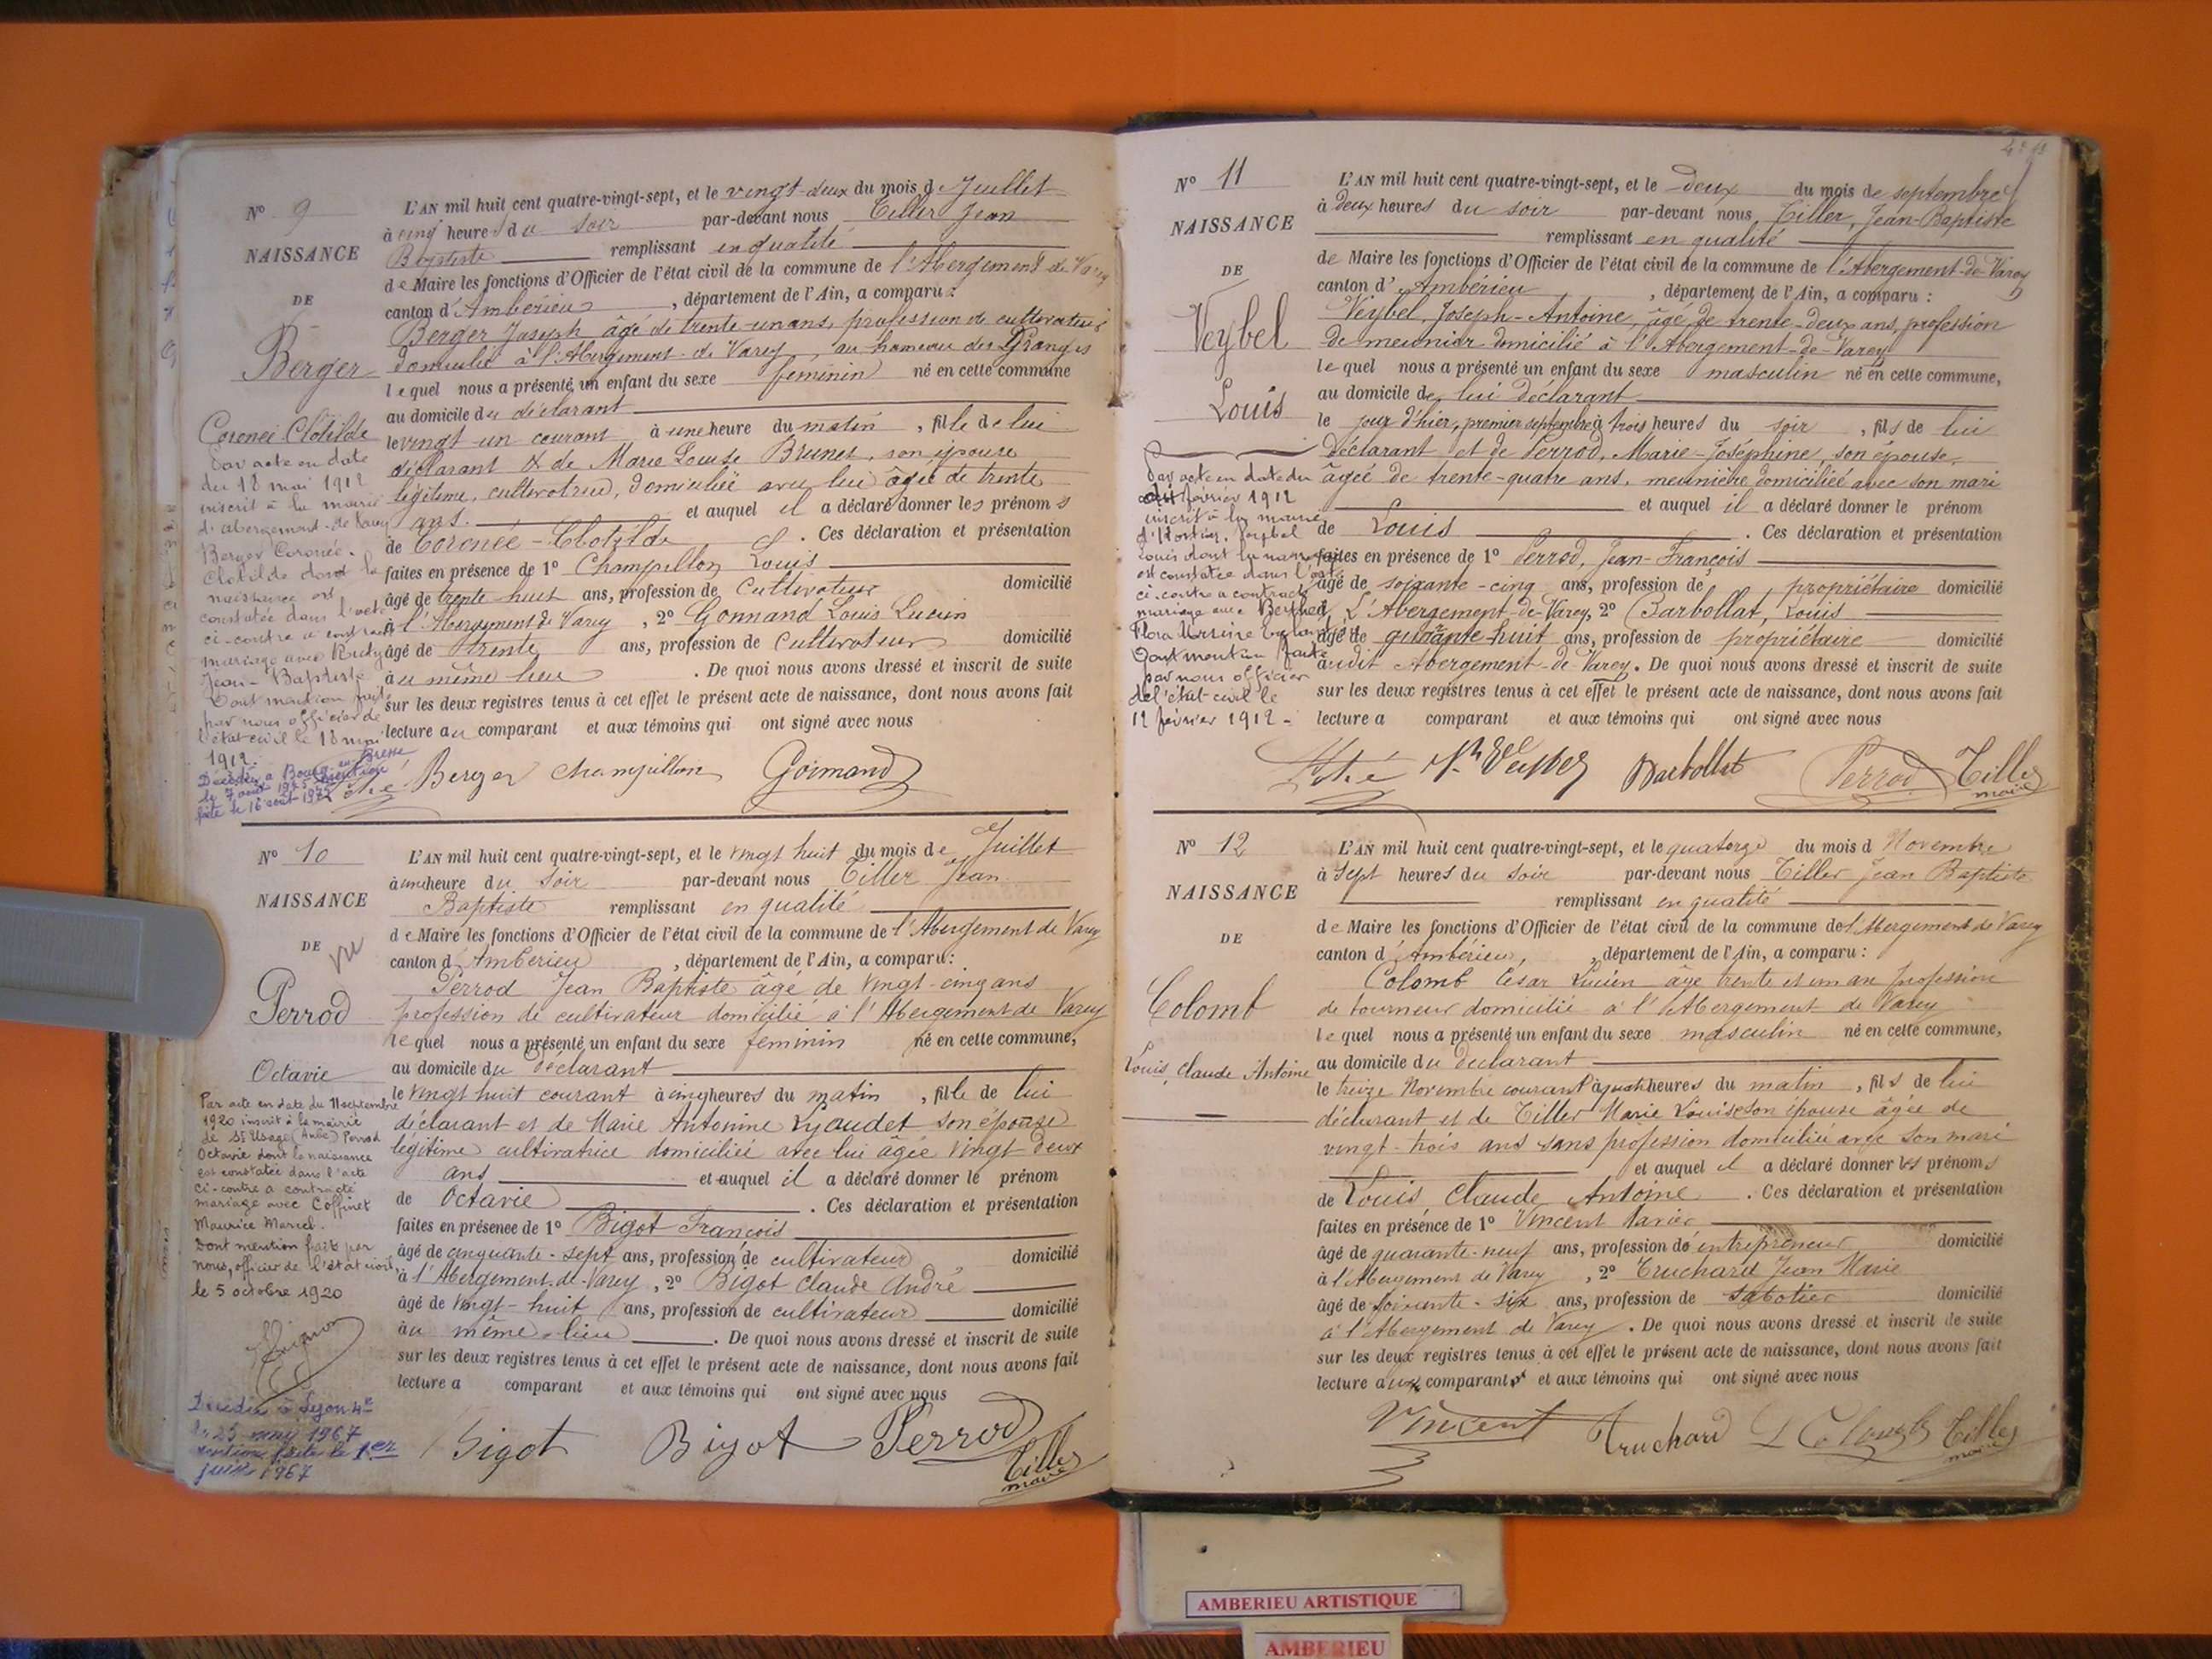 Nº 9
NAISSANCE
DE
Berger
Coronée Clotilde
Par acte en date
du 18 mai 1912
inscrit à la mairie
d'abergement-de Varey
Berger Coronée.
Clotilde dont la
naissance est
constatée dans l'acte
ci-contre a contracté
mariage avec
Jean-Baptiste
Dont mention faite
par nous officier de
l'état civil le 18 mai
1912.
Décédée à Bourg-en-Bresse
le 7 août
mention
faite le 16 août
L'AN mil huit cent quatre-vingt-sept, et le vingt-deux du mois d Juillet
à cinq heures du soir par-devant nous Tiller Jean
Baptiste remplissant en qualité
de Maire les fonctions d'Officier de l'état civil de la commune de l'Abergement de Varey
canton d'Ambérieu, département de l'Ain, a comparu :
Berger Joseph âgé de trente-un ans, profession de cultivateur
domicilié à l'Abergement-de Varey, au hameau des Granges
lequel nous a présenté un enfant du sexe féminin né en cette commune
au domicile du déclarant
le vingt-un courant à une heure du matin, fille de lui
déclarant & de Marie Louise Brunet, son épouse
légitime, cultivatrice, domiciliée avec lui âgée de trente
ans. et auquel il a déclaré donner les prénoms
de Coronée-Clotilde. Ces déclaration et présentation
faites en présence de 1º Champillon Louis
âgé de trente huit ans, profession de cultivateur domicilié
à l'Abergement de Varey, 2º Gonnand Louis Lucien
âgé de trente ans, profession de cultivateur domicilié
au même lieu. De quoi nous avons dressé et inscrit de suite
sur les deux registres tenus à cet effet le présent acte de naissance, dont nous avons fait
lecture au comparant et aux témoins qui ont signé avec nous
Berger Champillon Gonnand
Nº 10
NAISSANCE
DE
vu
Perrod
Octavie
Par acte en date du 11 septembre
1920 inscrit à la mairie
de St Usage (Aube) Perrod
Octavie dont la naissance
est constatée dans l'acte
ci-contre a contracté
mariage avec Coffinet
Maurice Marcel.
Dont mention faite par
nous, officier de l'état civil,
le 5 octobre 1920
Décédée à Lyon 4e
le 25 mai 1967
mention faite le 1er
juin 1967
L'AN mil huit cent quatre-vingt-sept, et le vingt huit du mois de Juillet
à une heure du soir par-devant nous Tiller Jean
Baptiste remplissant en qualité
de Maire les fonctions d'Officier de l'état civil de la commune de l'Abergement de Varey
canton d'Ambérieu, département de l'Ain, a comparu :
Perrod Jean Baptiste âgé de vingt-cinq ans
profession de cultivateur domicilié à l'Abergement de Varey
lequel nous a présenté un enfant du sexe féminin né en cette commune,
au domicile du déclarant
le vingt huit courant à cinq heures du matin, fille de lui
déclarant et de Marie Antonine Lyaudet son épouse
légitime cultivatrice domiciliée avec lui âgée vingt deux
ans et auquel il a déclaré donner le prénom
de Octavie. Ces déclaration et présentation
faites en présence de 1º Bigot François
âgé de cinquante-sept ans, profession de cultivateur domicilié
à l'Abergement-de-Varey, 2º Bigot Claude André
âgé de vingt-huit ans, profession de cultivateur domicilié
au même lieu. De quoi nous avons dressé et inscrit de suite
sur les deux registres tenus à cet effet le présent acte de naissance, dont nous avons fait
lecture a comparant et aux témoins qui ont signé avec nous
Bigot Bigot Perrod Tiller
maire
Nº 11
NAISSANCE
DE
Veybel
Louis
Par acte en date du
février 1912
inscrit à la mairie
Veybel
Louis dont la naissance
est constatée dans l'acte
ci-contre a contracté
mariage avec Berthet
Flora
Dont mention faite
par nous officier
de l'état-civil le
12 février 1912-
L'AN mil huit cent quatre-vingt-sept, et le deux du mois de septembre
à deux heures du soir par-devant nous Tiller, Jean-Baptiste
remplissant en qualité
de Maire les fonctions d'Officier de l'état civil de la commune de l'Abergement-de-Varey
canton d'Ambérieu, département de l'Ain, a comparu :
Veybel, Joseph-Antoine, âgé de trente-deux ans, profession
de meunier domicilié à l'Abergement-de-Varey
lequel nous a présenté un enfant du sexe masculin né en cette commune,
au domicile de lui déclarant
le jour d'hier, premier septembre à trois heures du soir, fils de lui
déclarant et de Perrod, Marie-Joséphine, son épouse,
âgée de trente-quatre ans, meunière domiciliée avec son mari
et auquel il a déclaré donner le prénom
de Louis. Ces déclaration et présentation
faites en présence de 1º Perrod, Jean-François
âgé de soixante-cinq ans, profession de propriétaire domicilié
à L'Abergement-de-Varey, 2º Barbollat, Louis
âgé de quarante-huit ans, profession de propriétaire domicilié
audit Abergement-de-Varey. De quoi nous avons dressé et inscrit de suite
sur les deux registres tenus à cet effet le présent acte de naissance, dont nous avons fait
lecture a comparant et aux témoins qui ont signé avec nous
Barbollat Perrod Tiller
maire
Nº 12
NAISSANCE
DE
Colomb
Louis, Claude Antoine
L'AN mil huit cent quatre-vingt-sept, et le quatorze du mois d Novembre
à sept heures du soir par-devant nous Tiller Jean Baptiste
remplissant en qualité
de Maire les fonctions d'Officier de l'état civil de la commune de l'Abergement de Varey
canton d'Ambérieu, département de l'Ain, a comparu :
Colomb César Lucien âgé trente et un an profession
de tourneur domicilié à l'Abergement de Varey
lequel nous a présenté un enfant du sexe masculin né en cette commune,
au domicile du déclarant
le treize Novembre courant à quatre heures du matin, fils de lui
déclarant et de Tiller Marie Louise son épouse âgée de
vingt-trois ans sans profession domiciliée avec son mari
et auquel il a déclaré donner les prénoms
de Louis Claude Antoine. Ces déclaration et présentation
faites en présence de 1º Vincent Xavier
âgé de quarante-neuf ans, profession d'entrepreneur domicilié
à l'Abergement de Varey, 2º Truchard Jean Marie
âgé de soixante-six ans, profession de sabotier domicilié
à l'Abergement de Varey. De quoi nous avons dressé et inscrit de suite
sur les deux registres tenus à cet effet le présent acte de naissance, dont nous avons fait
lecture aux comparants et aux témoins qui ont signé avec nous
Vincent Truchard L Colomb Tiller
maire
AMBERIEU ARTISTIQUE
AMBERIEU